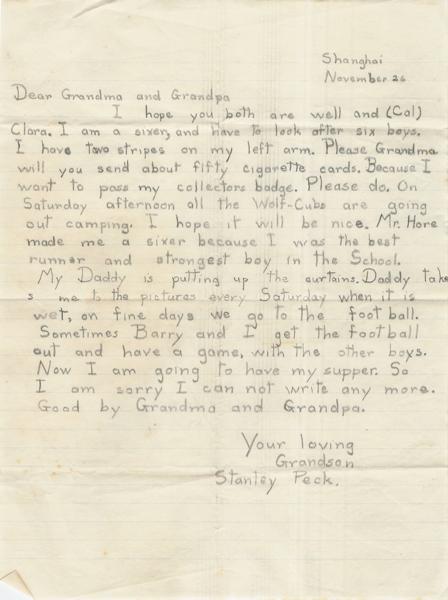 Shanghai
November 26
Dear Grandma and Grandpa
I hope you both are well and (Cal)
Clara. I am a sixer, and have to look after six boys.
I have two stripes on my left arm. Please Grandma
will you send about fifty cigarette cards. Because I
want to pass my collectors badge. Please do. On
Saturday afternoon all the Wolf-Cubs are going
out camping. I hope it will be nice. Mr. Hore
made me a sixer because I was the best
runner and strongest boy in the School.
My Daddy is putting up the curtains. Daddy take
s me to the pictures every Saturday when it is
wet, on fine days we go to the foot ball.
Sometimes Barry and I get the football
out and have a game, with the other boys.
Now I am going to have my supper. So
I am sorry I can not write any more.
Good by Grandma and Grandpa.
Your loving
Grandson
Stanley Peck.